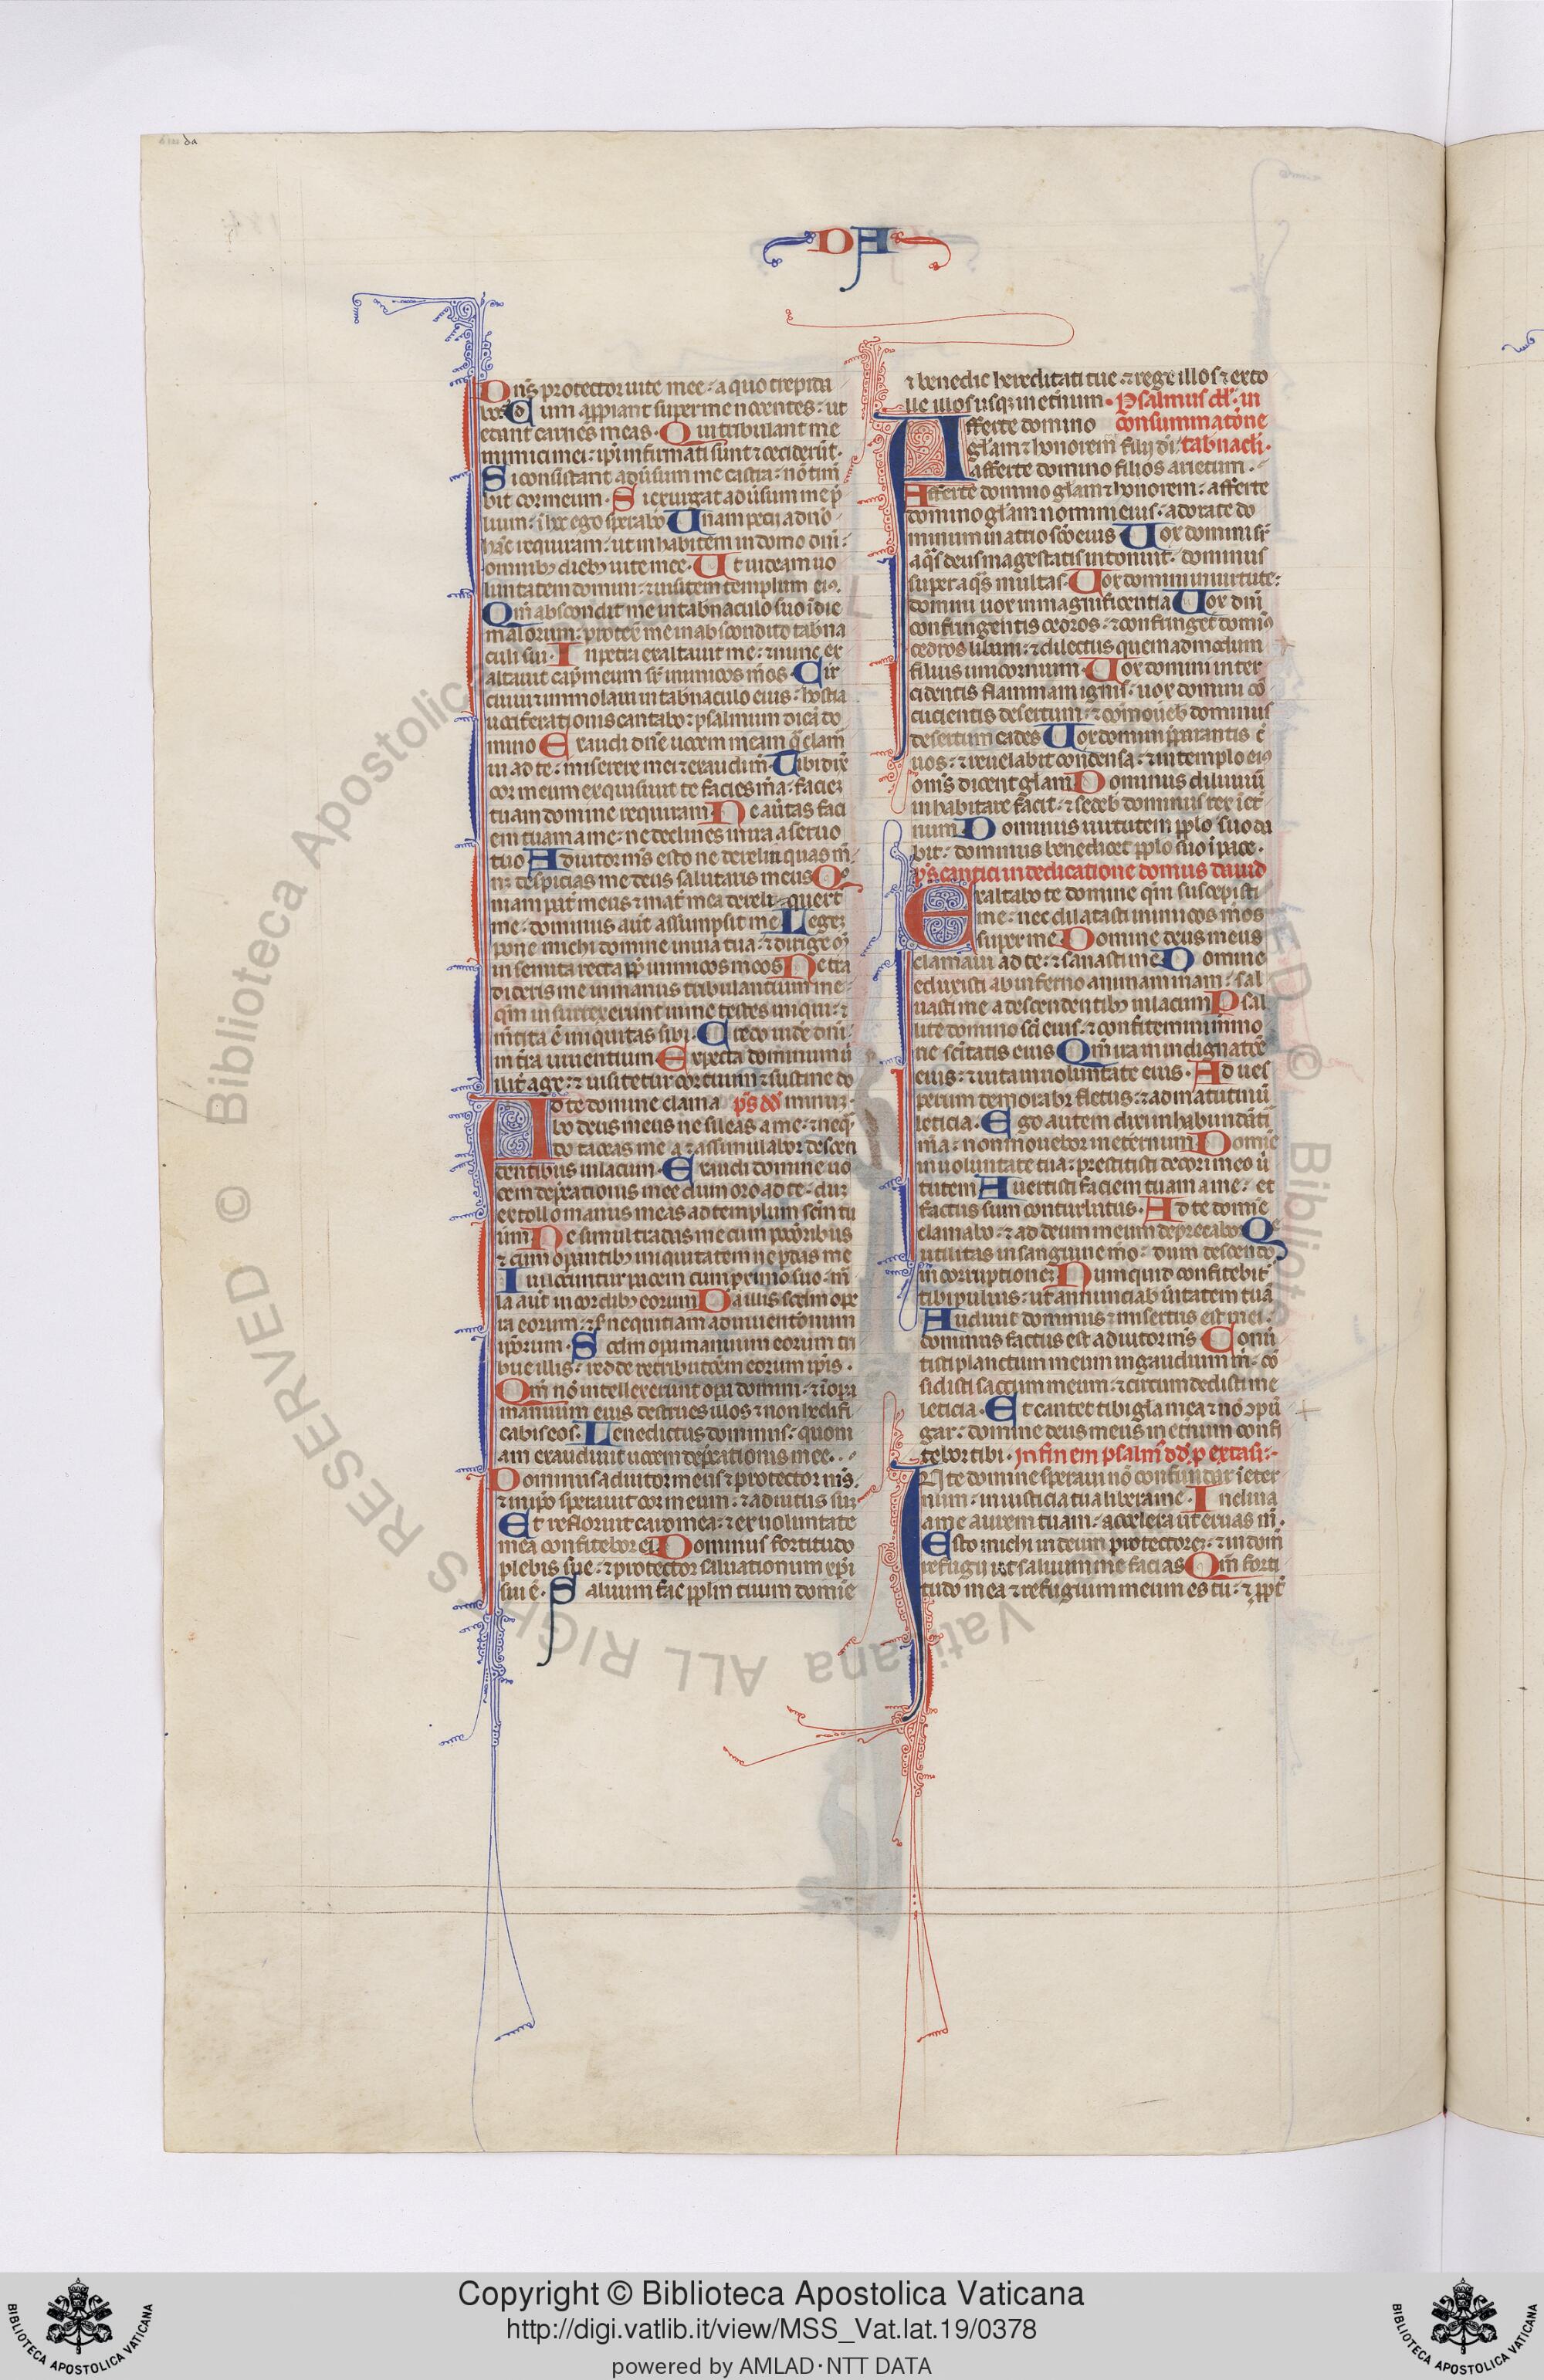 DA
Dn̄s protector uite mee· a quo trepida
bo· Cum apꝓpiant super me nocentes· ut
edant carnes meas· Qui tribulant me
inimici mei· ip̄i infirmati sunt ⁊ ceciderūt·
Si consistant adūsum me castra· nō tim̄
bit cor meum· Si exurgat adūsum me p̄
lium· ī hoc ego sperabo Unam petii a dn̄o
hāc requiram· ut inhabitem in domo dn̄i·
omnibꝫ diebꝫ uite mee· Ut uideam uo
luntatem domini· ⁊ uisitem templum eiꝰ·
Qm̄ abscondit me in tabnaculo suo ī die
malorum· protex̄ me in abscondito tabna
culi sui· In petra exaltauit me· ⁊ nunc ex
altauit cap̄ meum sr̄ inimicos m̄os· Cir
cuiui ⁊ immolaui in tabnaculo eius· hostiā
uociferationis cantabo ⁊ psalmum dicā do
mino Exaudi dn̄e uocem meam q̄ clam̄
ui ad te· miserere mei ⁊ exaudi m̄· Tibi dix̄
cor meum exquisiuit te facies m̄a· faciez
tuam domine requiram Ne aūtas faci
em tuam a me· ne declines in ira a seruo
tuo Adiutor m̄s esto ne derelinquas m̄·
nꝫ despicias me deus salutaris meus Qō
niam pat̄ meus ⁊ mat̄ mea dereliquert̄
me· dominus aūt assumpsit me Legeꝫ
pone michi domine in uia tua· ⁊ dirige m̄
in semita recta ꝓp̄ inimicos meos Ne tra
dideris me in manus tribulantium me·
qm̄ insurrexerunt in me testes iniqui· ⁊
m̄tita ē iniquitas sibi· Credo uide dn̄i·
in t̄ra uiuentium Expecta dominum ū
ilit̄ age· ⁊ uisitetur cor tuum ⁊ sustine do
Ad te domine clama p̄s dd̄ minuꝫ·
bo deus meus ne sileas a me· ⁊ neqn̄
do taceas me a ⁊ assimilabor descen
dentibus in lacum· Exaudi domine uo
cem dep̄cationis mee dum oro ad te· duꝫ
extollo manus meas ad templum scm̄ tu
um Ne simul tradas me cum peccōribus
⁊ cum opantibꝫ iniquitatem ne pdas me
Qui locuntur pacem cum ꝓximo suo· m̄
la aūt in cordibꝫ eorum Da illis scdm̄ ope
ra eorum· ⁊ s̄ nequitiam adinuentōnum
ip̄orum· Scdm̄ opa manuum eorum tri
bue illis· redde retributōem eorum ip̄is·
Qm̄ nō intellexerunt opa domini· ⁊ ī opa
manuum eius destrues illos ⁊ non hedifi
cabis eos· Benedictus dominus· quoni
am exaudiuit uocem dep̄cationis mee·
Dominus adiutor meus ⁊ protector m̄s·
⁊ in ip̄o sperauit cor meum· ⁊ adiutus suꝫ
Et refloruit caro mea· ⁊ ex uoluntate
mea confitebor ei Dominus fortitudo
plebis sue· ⁊ protector saluationum xp̄i
sui ē· Saluum fac pplm̄ tuum domīe
⁊ benedic hereditati tue· ⁊ rege illos ⁊ exto
lle illos usqꝫ in et̄num· Psalmus dd̄· in
Afferte domino consummatōne
glām ⁊ honorem filij dī· tabnacli·
afferte domino filios arietum·
Afferte domino glām ⁊ honorem· afferte
domino glām nomini eius· adorate do
minum in atrio scō eius Uox domini sr̄
aq̄s deus magestatis intonuit· dominus
super aq̄s multas· Uox domini in uirtute·
domini uox in magnificentia Uox dn̄i
confringentis cedros· ⁊ confringet domiꝰ
cedros libani· ⁊ dilectus quemadmodum
filius unicornium· Uox domini inter
cidentis flammam ignis· uox domini cō
cucientis desertum· ⁊ cōmoueb̄ dominus
desertum cades Uox domini p̄parantis c̄
uos· ⁊ reuelabit condensa· ⁊ in templo eiꝰ
om̄s dicent glām Dominus diluuiū
inhabitare facit· ⁊ sedeb̄ dominus rex ī et̄
num Dominus uirtutem pplo suo da
bit· dominus benedicet pplo suo ī pace·
p̄s cantici in dedicatione domus dauid
Exaltabo te domine qm̄ suscepisti
me· nec dilatasti inimicos m̄os
super me Domine deus meus
clamaui ad te· ⁊ sanasti me Domine
eduxisti ab inferno animam mam· sal
uasti me a descendentibꝫ in lacum Psal
lite domino scī eius· ⁊ confitemini mmo
rie sc̄itatis eius Qm̄ ira in indignatōe
eius· ⁊ uita in uoluntate eius· Ad ues
perum demorabr̄ fletus· ⁊ ad matutinū
leticia· Ego autem dixi in habundāti
m̄a· non mouebor in eternum Domīe
in uoluntate tua· prestitisti decori meo ū
tutem Auertisti faciem tuam a me· et
factus sum conturbatus· Ad te domīe
clamabo· ⁊ ad deum meum deprecabor Qē
utilitas in sanguine m̄o· dum descendo
in corruptioneꝫ Numquid confitebit̄
tibi puluis· ut annunciab̄ ūitatem tuā
Audiuit dominus ⁊ misertus est mei·
dominus factus est adiutor m̄s Conū
tisti planctum meum in gaudium m̄· cō
sidisti saccum meum· ⁊ circumdedisti me
leticia· Et cantet tibi gl̄a mea ⁊ nō ꝯpū
gar· domine deus meus in et̄num confi
tebor tibi· In finem psalm̄ dd̄· p extasi·
In te domine speraui nō confundar ī eter
num· in iusticia tua libera me· Inclina
a me aurem tuam· accelera ut̄ eruas m̄·
Esto michi in deum protectoreꝫ· ⁊ in dom̄
refugii ut saluum me facias Qm̄ forti
tudo mea ⁊ refugium meum es tu· ⁊ ꝓpt̄
Copyright © Biblioteca Apostolica Vaticana
http://digi.vatlib.it/view/MSS_Vat.lat.19/0378
powered by AMLAD·NTT DATA
BIBLIOTECA APOSTOLICA VATICANA
BIBLIOTECA APOSTOLICA VATICANA